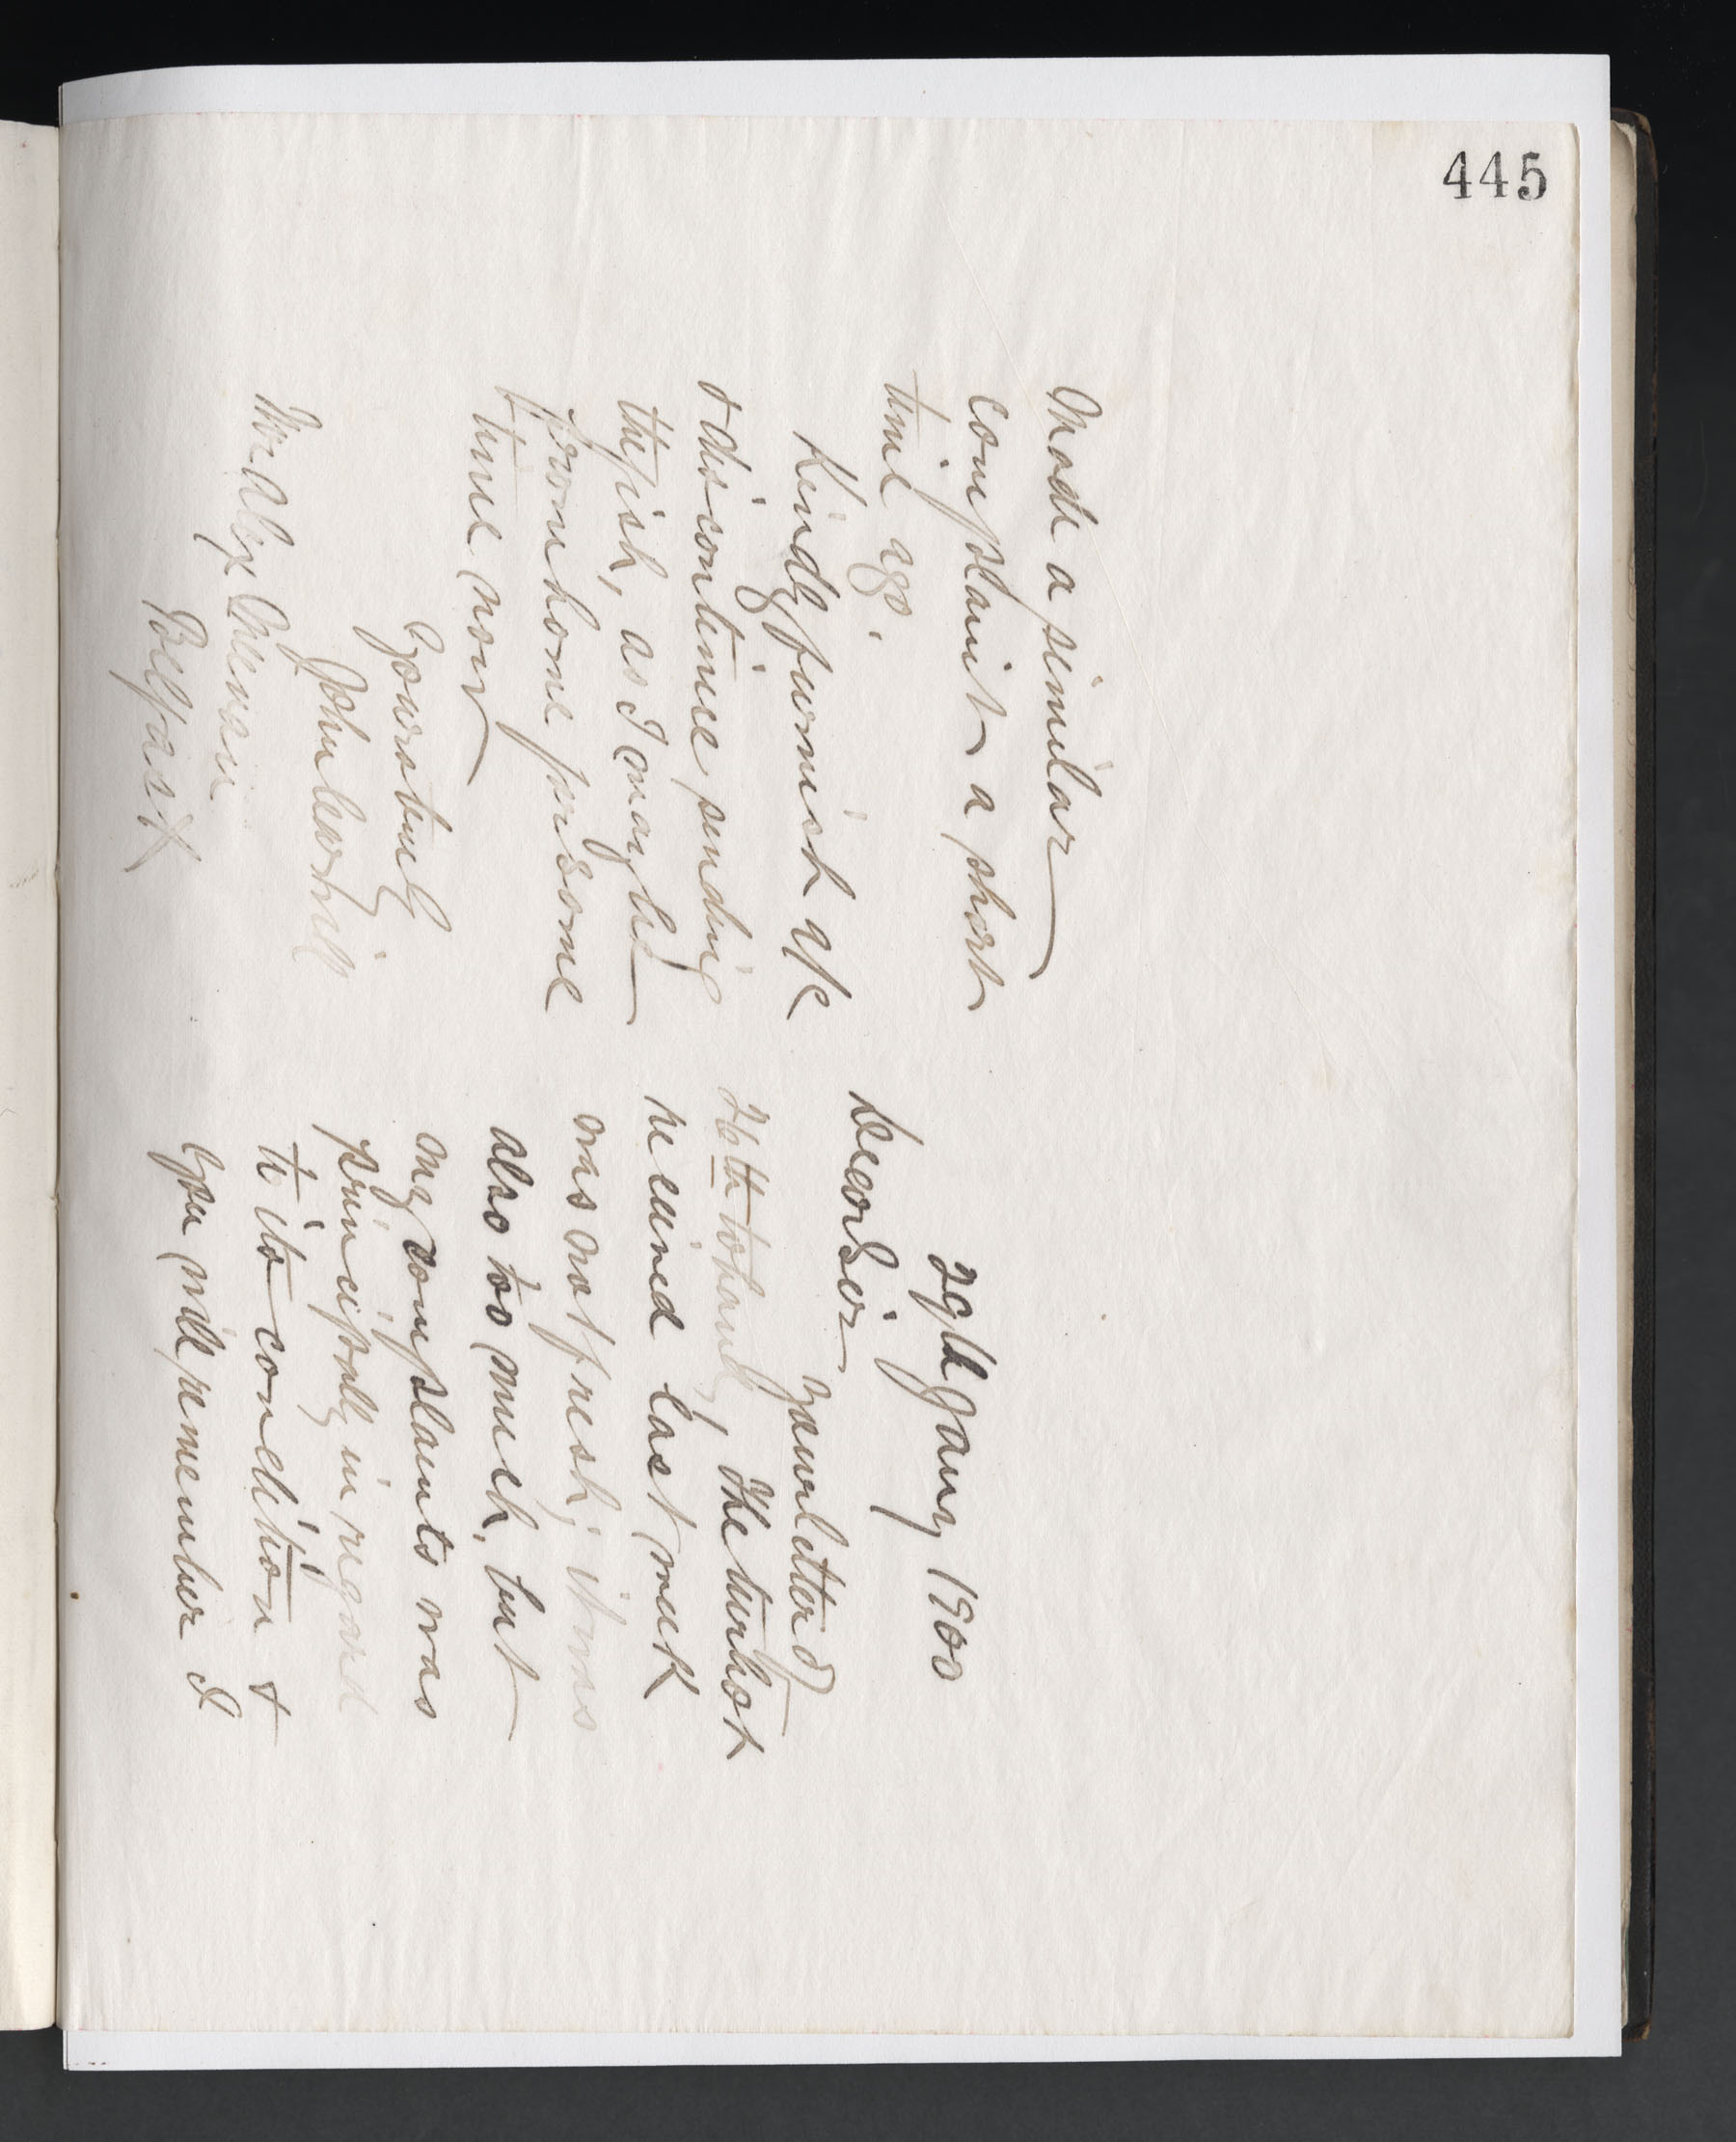 445
29th Jany 1900
Dear Sir Your letter of
26th to hand, The turbot
received last week
was not fresh; it was
also too much, but
my complaints was
principally in regard
to its condition &
you will remember I
made a similar
complaint a short
time ago.
Kindly furnish a/c
& discontinue sending
the fish, as I may be
from home for some
time now
Yours truly
John
Mr Alex
Belfast